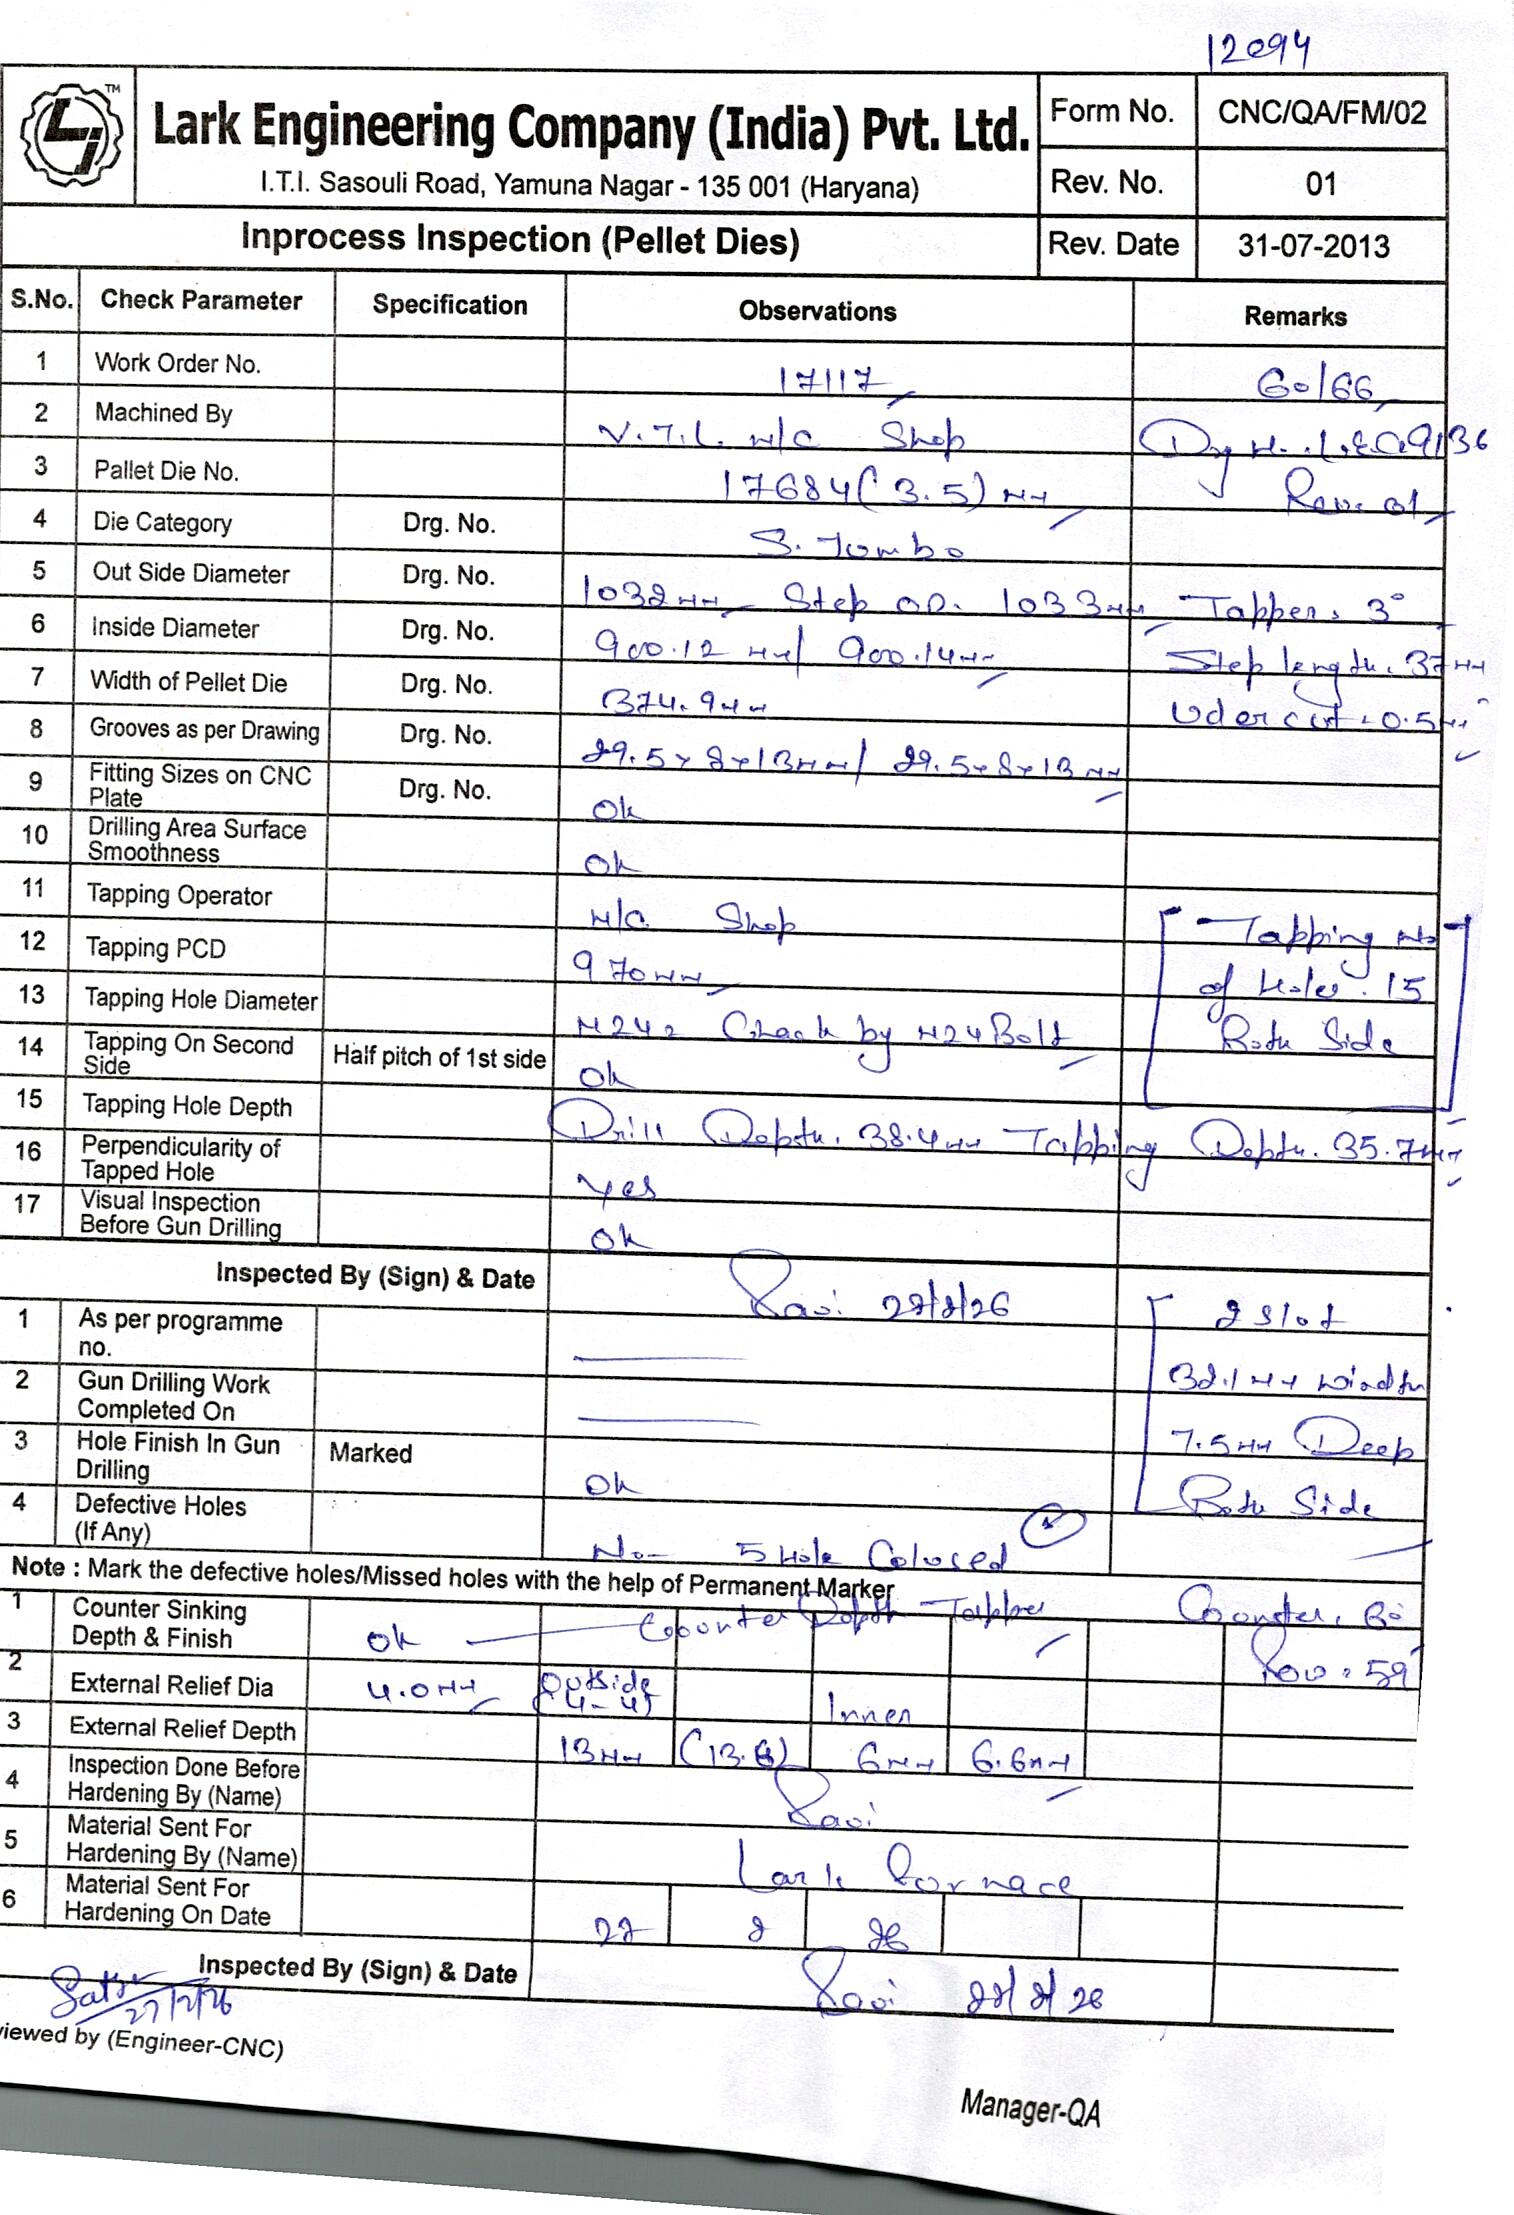 12094
TM
Lark Engineering Company (India) Pvt. Ltd.
I.T.I. Sasouli Road, Yamuna Nagar - 135 001 (Haryana)
Form No. CNC/QA/FM/02
Rev. No. 01
Inprocess Inspection (Pellet Dies)
Rev. Date 31-07-2013
S.No. Check Parameter Specification Observations Remarks
1 Work Order No. 17117 60/66
2 Machined By V.T.L. M/C Shop
3 Pallet Die No. 17684(3.5)mm Rev. 01
4 Die Category Drg. No. S. Jumbo
5 Out Side Diameter Drg. No. 1032mm Step OD. 1033mm Tapper. 3°
6 Inside Diameter Drg. No. 900.12 mm/ 900.14mm Step length. 37mm
7 Width of Pellet Die Drg. No. 374.9mm Udercut. 0.5mm
8 Grooves as per Drawing Drg. No. 29.5x8x13mm/ 29.5x8x13mm
9 Fitting Sizes on CNC Plate Drg. No. Ok
10 Drilling Area Surface Smoothness Ok
11 Tapping Operator M/C Shop Tapping No
12 Tapping PCD 970mm of Holes. 15
13 Tapping Hole Diameter M24 Chack by M24 Bolt Both Side
14 Tapping On Second Side Half pitch of 1st side Ok
15 Tapping Hole Depth Drill Depth. 38.4mm Tapping Depth. 35.7mm
16 Perpendicularity of Tapped Hole Yes
17 Visual Inspection Before Gun Drilling Ok
Inspected By (Sign) & Date Ravi 22/2/26 2 Slot
1 As per programme no. 32.1mm windth
2 Gun Drilling Work Completed On 7.5mm Deep
3 Hole Finish In Gun Drilling Marked Ok Both Side
4 Defective Holes (If Any) No- 5 Hole Colused
Note : Mark the defective holes/Missed holes with the help of Permanent Marker
1 Counter Sinking Depth & Finish Ok Counter Depth Tapper Counter.
Row. 59
2 External Relief Dia 4.0mm Outside (4-4) Inner
3 External Relief Depth 13mm 6mm 6.6mm
4 Inspection Done Before Hardening By (Name) Ravi
5 Material Sent For Hardening By (Name) Lark Fornace
6 Material Sent For Hardening On Date 2 26
Inspected By (Sign) & Date Ravi
27/2/26
viewed by (Engineer-CNC)
Manager-QA